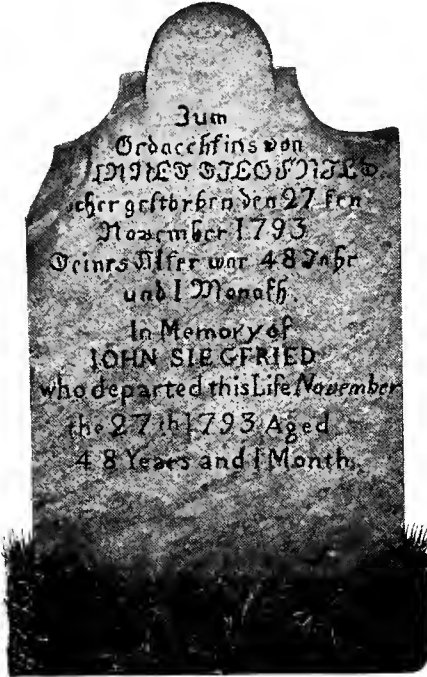 Zum
Gedaechtnis von
gestorben den 27 ten
November 1793
Seines Alter war 48 Jahr
und 1 Monath.
In Memory of
IOHN SIEGFRIED
who departed this Life November
the 27th 1793 Aged
48 Years and 1 Month.